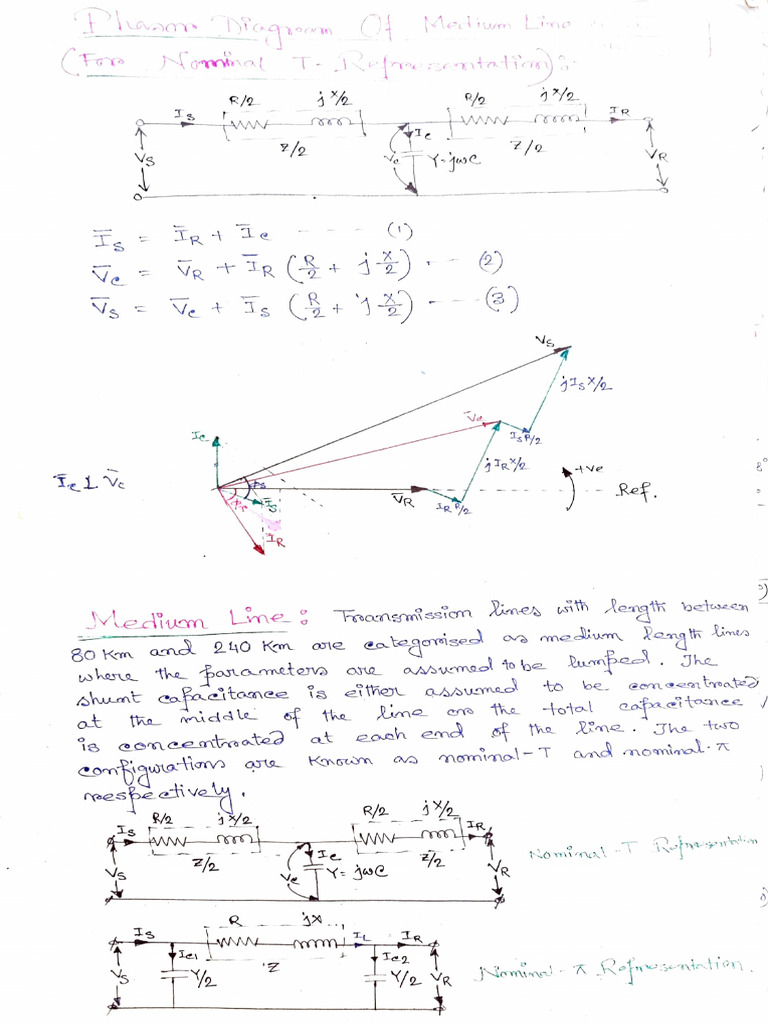 Phasor Diagram Of Medium Line
(For Nominal T-Representation):
R/2 jX/2 R/2 jX/2
IS IR
Z/2 IC Z/2
VS VC Y=jωC VR
ĪS = ĪR + ĪC ---- (1)
V̄C = V̄R + ĪR (R/2 + jX/2) --- (2)
V̄S = V̄C + ĪS (R/2 + jX/2) ---- (3)
VS
jISX/2
V̄C
IC
ISR/2
jIRX/2
+ve
ĪC ⊥ V̄C
ϕS
ϕR
ĪS
V̄R
IRR/2
Ref.
ĪR
Medium Line: Transmission lines with length between
80 Km and 240 Km are categorised as medium length lines
where the parameters are assumed to be lumped. The
shunt capacitance is either assumed to be concentrated
at the middle of the line or the total capacitance
is concentrated at each end of the line. The two
configurations are known as nominal-T and nominal-π
respectively.
R/2 jX/2 R/2 jX/2
IS IR
Z/2 IC Z/2
VS VC Y=jωC VR
Nominal-T Representation
R jX
IS IL IR
IC1 Z IC2
VS Y/2 Y/2 VR
Nominal-π Representation.